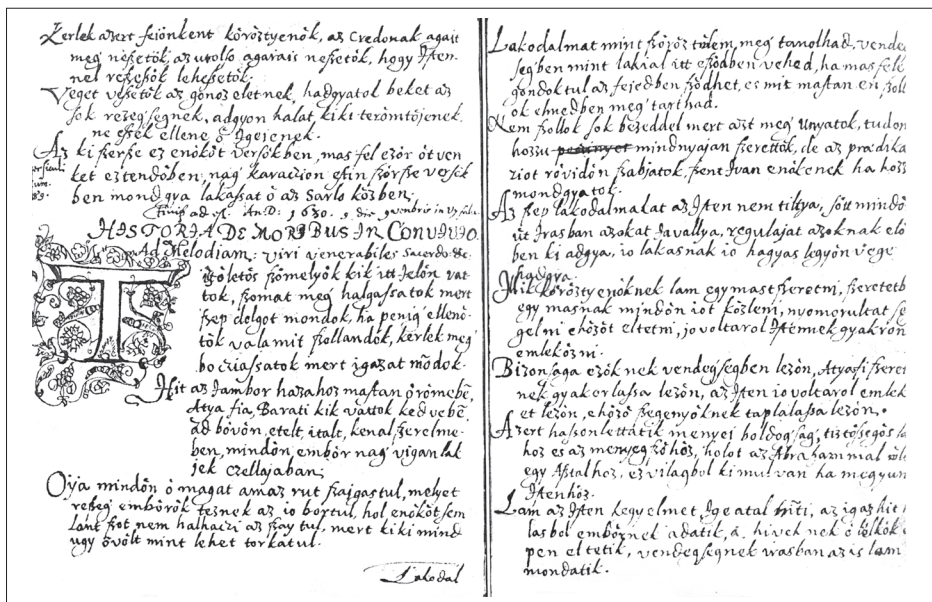 Kerlek azert feiönkent köröztyenök, az Credonak agait
meg nezzetök, az utolso agarais nezzetök, hogy Isten-
nel rezessök lehessetök.
Veget vessetök az gonoz eletnek, hadgyatol beket az
sok rezegsegnek, adgyon halat, kiki terömtöjenek.
ne essek ellene ö Igejenek.
Az ki szerze ez enököt versökben, mas fel ezör ötven
ket eztendöben, nag karacion estin szörze versek
ben mondgya lakassat ö az Sarlo közben,
1630.
HISTORIA DE MORIBUS IN CONVIVIO.
Ad Melodiam: viri venerabiles Sacerdo-
TIztöletös szömelyök kik itt Jelön vat
tok, szomat meg halgassatok mert
szep dolgot mondok, ha penig ellenö-
tök valamit szollandok, kerlek meg
bocziassatok mert igazat mõdok.
Hit az Jambor hazahoz mastan örömebẽ,
Atya fia, Barati kik vattok kedvebẽ
ad bövön, etelt, italt, kenal szerelme-
ben, mindön embör nag vigan lak
jek czellajaban,
Oÿa mindön ö magat amaz rut szajgastul, melyet
rezeg embörök teznek az io bortul, hol enököt sem
lant szot nem halhaczi az szaytul, mert kiki mind
ugy övölt mint lehet torkatul.
Lakodal
Lakodalmat mint szöröz tülem, meg tanolhad, vende
segben mint lakial itt eszödben vehed, ha mas fele
gondoktul az fejedben födhet, es mit mastan en szoll
ok elmedben meg tarthad.
Nem szollok sok bezeddel mert azt meg unyatok, tudom
hozzu mindnyajan szerettök, de az prædika
tiot rövidön szabjatok, szent Ivan enökenek ha hozz
mondgyatok.
Az szep lakodalmakat az Isten nem tiltya, sött mindö
ütt Irasban azokat Javallya, regulajat azoknak elö
ben ki adgya, io lakasnak io hagyas legyön vege
hadgya.
Illik köröztyenöknek lam egymast szeretni, szeretetb
egy masnak mindön iot közleni, nyomorultat se
gelni ehözöt eltetni, jo voltarol Istennek gyakrön
emleközni.
Bizonsaga ezök nek vendegsegben lezön, Atyafi szeret
nek gyakorlassa lezön, az Isten io voltarol emlek
et lezön, ehözö szegenyöknek taplalassa lezön.
Azert hassonlettatik menyei boldogsag, tiztösegös la
hoz es az menyegzöhöz, holot az Abrahammal
egy Aztalhoz, ez vilagbol ki mulvan ha megyun
Istenhöz.
Lam az Isten kegyelmet Ige atal hiti, az igaz hit
lasbol embörnek adatik, a hiveknek ö lelkök
pen eltetik, vendegsegnek irasban az is lam
mondatik.